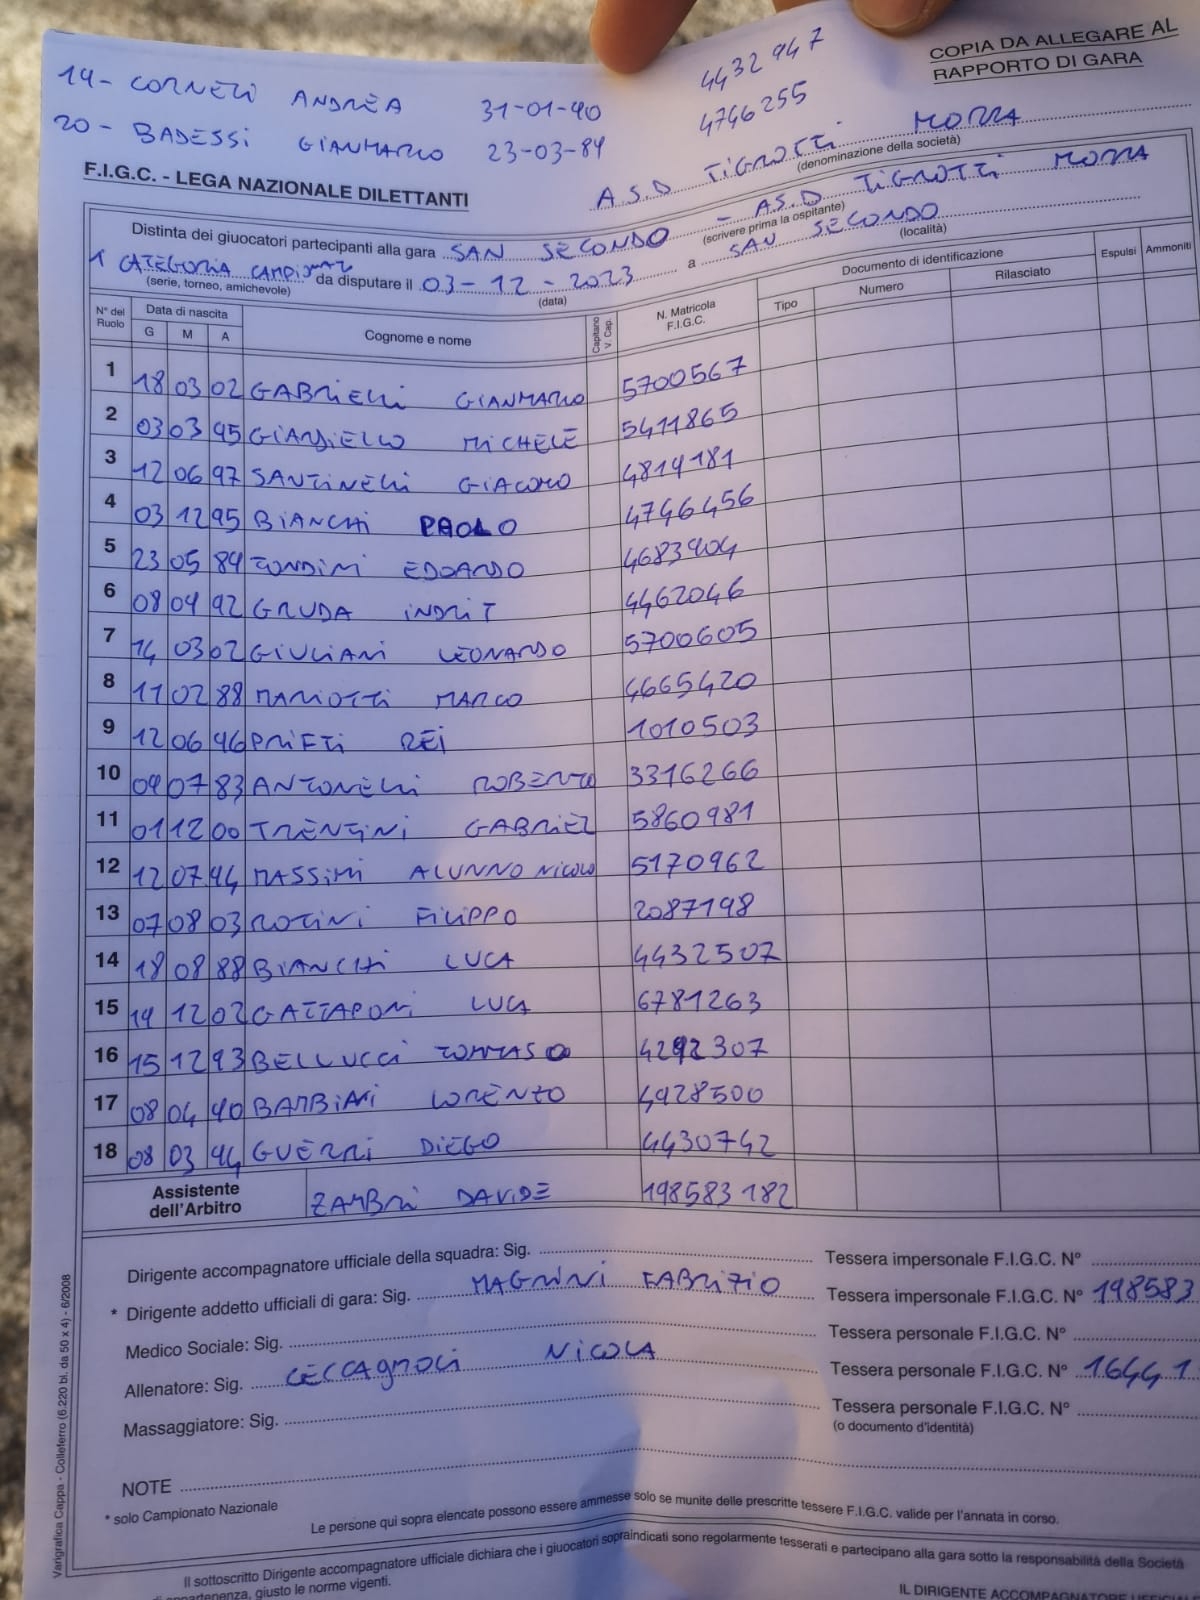 COPIA DA ALLEGARE AL
RAPPORTO DI GARA
19- CORNELI ANDREA 31-01-90 4432947
20- BADESSI GIANMARCO 23-03-89 4746255
F.I.G.C. - LEGA NAZIONALE DILETTANTI
A.S.D TIGROTTI MORRA
(denominazione della società)
Distinta dei giuocatori partecipanti alla gara SAN SECONDO - A.S.D TIGROTTI MORRA
(scrivere prima la ospitante)
1 CATEGORIA da disputare il 03-12-2023 a SAN SECONDO
(serie, torneo, amichevole) (data) (località)
N° del Ruolo Data di nascita G M A Cognome e nome Capitano V. Cap. N. Matricola F.I.G.C. Documento di identificazione Tipo Numero Rilasciato Espulsi Ammoniti
1 18 03 02 GABRIELLI GIANMARCO 5700567
2 03 03 95 GIARDIELLO MICHELE 5411865
3 12 06 97 SANTINELLI GIACOMO 4819181
4 03 12 95 BIANCHI PAOLO 4746456
5 23 05 89 TONDINI EDOARDO 4683904
6 08 09 92 GRUDA INDRIT 4462046
7 14 03 02 GIULIANI LEONARDO 5700605
8 11 02 88 MARIOTTI MARCO 4665420
9 12 06 96 PRIFTI REI 1010503
10 09 07 83 ANTONELLI ROBERTO 3316266
11 01 12 00 TRENTINI GABRIEL 5860981
12 12 07 94 MASSIMI ALUNNO NICOLO 5170962
13 07 08 03 ROTINI FILIPPO 2087198
14 18 08 88 BIANCHI LUCA 4432507
15 19 12 02 GATTAPONI LUCA 6781263
16 15 12 93 BELLUCCI TOMMASO 4292307
17 08 04 90 BARBINI LORENZO 4928500
18 08 03 94 GUERRI DIEGO 4430742
Assistente dell'Arbitro ZAMBRI DAVIDE 198583182
Dirigente accompagnatore ufficiale della squadra: Sig. Tessera impersonale F.I.G.C. N°
* Dirigente addetto ufficiali di gara: Sig. MAGRINI FABRIZIO Tessera impersonale F.I.G.C. N° 198583
Medico Sociale: Sig. Tessera personale F.I.G.C. N°
Allenatore: Sig. CECCAGNOLI NICOLA Tessera personale F.I.G.C. N° 16441
Massaggiatore: Sig. Tessera personale F.I.G.C. N°
(o documento d'identità)
NOTE
* solo Campionato Nazionale
Le persone qui sopra elencate possono essere ammesse solo se munite delle prescritte tessere F.I.G.C. valide per l'annata in corso.
Il sottoscritto Dirigente accompagnatore ufficiale dichiara che i giuocatori sopraindicati sono regolarmente tesserati e partecipano alla gara sotto la responsabilità della Società
di appartenenza, giusto le norme vigenti.
IL DIRIGENTE ACCOMPAGNATORE UFFICIALE
Varigrafica Cappa - Colleferro (6.220 bl. da 50 x 4) - 6/2008